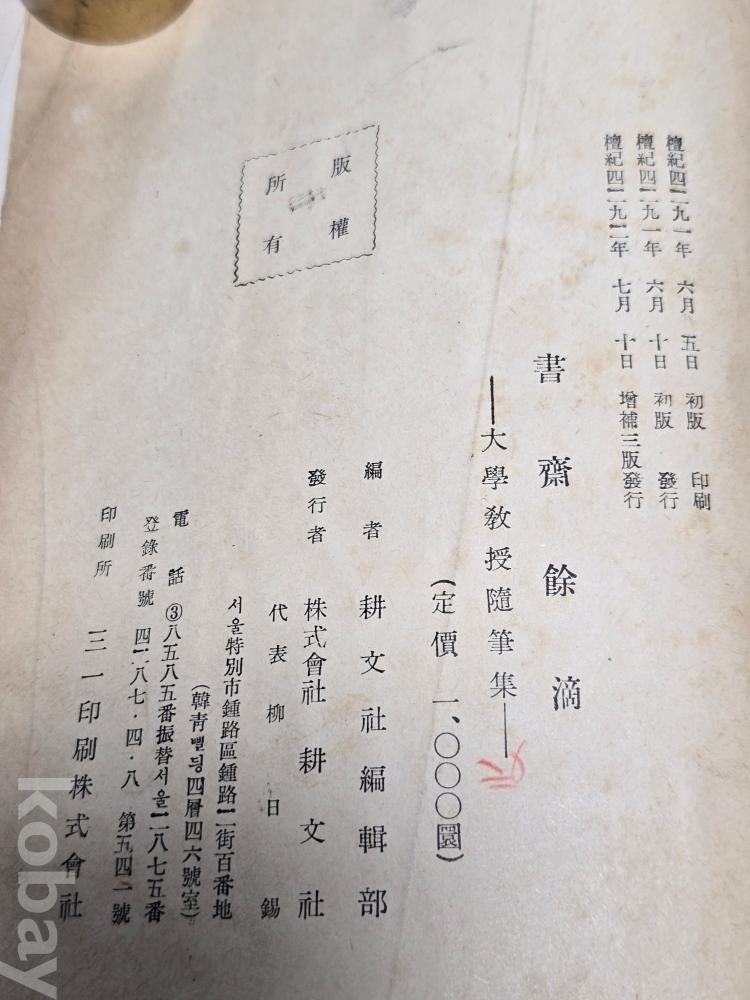 檀紀四二九一年 六月 五日 初版 印刷
檀紀四二九一年 六月 十日 初版 發行
檀紀四二九二年 七月 十日 增補三版發行
書齋餘滴
―大學敎授隨筆集―
(定價 一、〇〇〇圜)
編者 耕文社編輯部
發行者 株式會社 耕文社
代表 柳日錫
서울特別市鍾路區鍾路二街百番地
(韓靑삘딍四層四六號室)
電話 ③八五八五番振替서울二八七五番
登錄番號 四二八七·四·八 第五四一號
印刷所 三一印刷株式會社
版權
所有
kobay